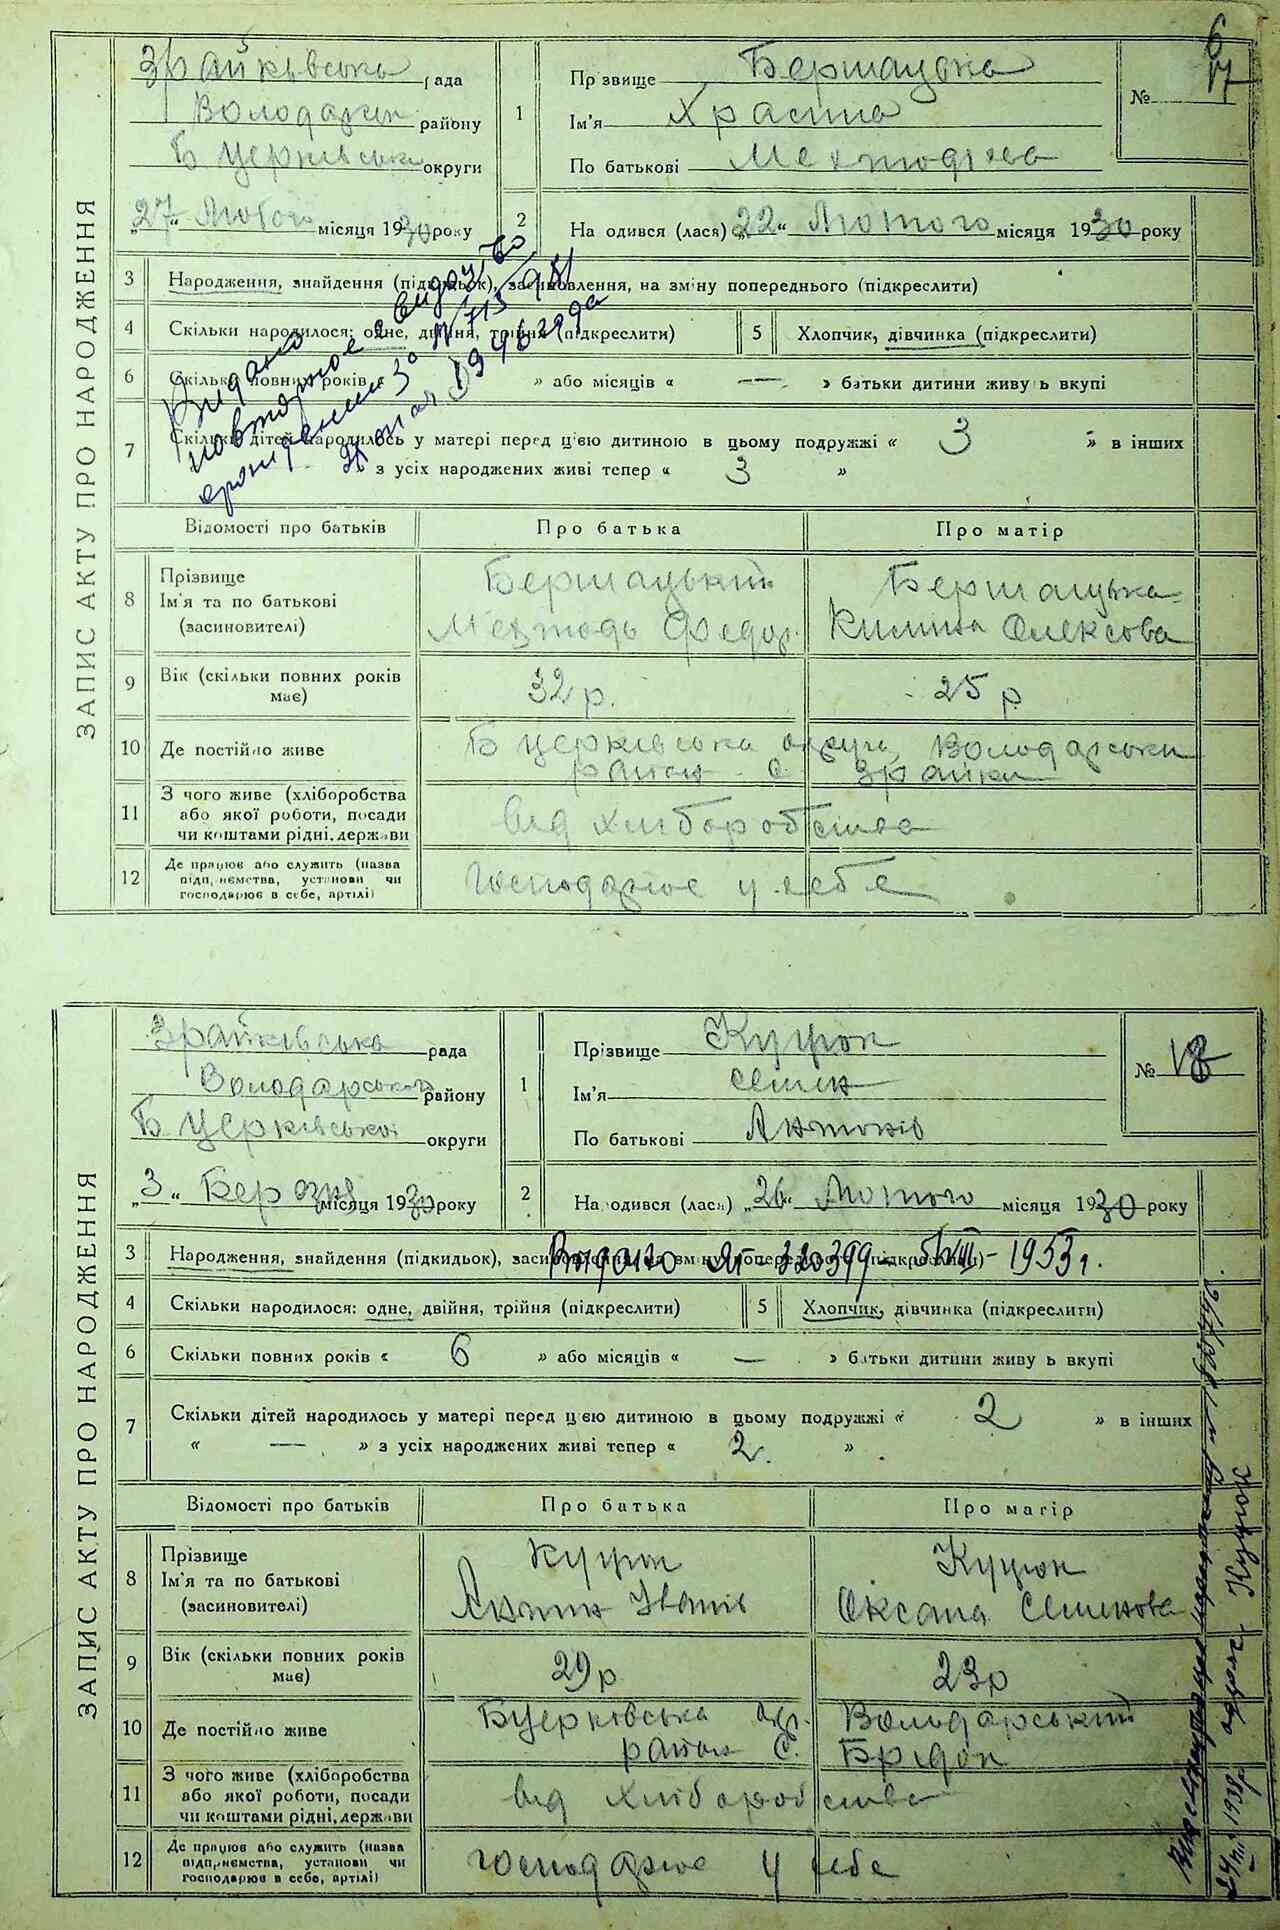 6
ЗАПИС АКТУ ПРО НАРОДЖЕННЯ
Зрайківська рада
Володарськ району
Б Церківська округи
„27“ Лютого місяця 1930 року
1
Пр звище Бершацька
Ім'я Храстина
По батькові Мехтодієва
№ 17
2
На одився (лася) „22“ Лютого місяця 1930 року
3 Народження, знайдення (підкидьок), засиновлення, на зміну попереднього (підкреслити)
4 Скільки народилося: одне, двійня, трійня (підкреслити)
5 Хлопчик, дівчинка (підкреслити)
6 Скільки повних років « » або місяців « — » батьки дитини живу ь вкупі
7 Скільки дітей народилось у матері перед цією дитиною в цьому подружжі « 3 » в інших
з усіх народжених живі тепер « 3 »
Видано
повторное свидоцтво
1946 года
Відомості про батьків Про батька Про матір
8 Прізвище Ім'я та по батькові (засиновителі)
Бершацький Мехтодь Федор.
Бершацька Килина Олексова
9 Вік (скільки повних років має) 32 р. 25 р
10 Де постійно живе Б церківська округа, Володарськи
район с. Зрайки
11 З чого живе (хліборобства або якої роботи, посади чи коштами рідні, держави
від хліборобства
12 Де працює або служить (назва підп иємства, установи чи господарює в себе, артілі)
господарює у себе
ЗАПИС АКТУ ПРО НАРОДЖЕННЯ
Зрайківська рада
Володарського району
Б Церківської округи
„3“ Березня місяця 1930 року
1
Прізвище Куцюк
Ім'я Семен
По батькові Антонів
№ 18
2
На одився (лася) „26“ Лютого місяця 1930 року
3 Народження, знайдення (підкидьок), засиновлення, на зміну попереднього (підкреслити)
Видано ЯТ 320399 5/VIII - 1953 г.
4 Скільки народилося: одне, двійня, трійня (підкреслити)
5 Хлопчик, дівчинка (підкреслити)
6 Скільки повних років « 6 » або місяців « — » батьки дитини живу ь вкупі
7 Скільки дітей народилось у матері перед цією дитиною в цьому подружжі « 2 » в інших
« — » з усіх народжених живі тепер « 2 »
Відомості про батьків Про батька Про матір
8 Прізвище Ім'я та по батькові (засиновителі)
Куцюк Антин Іванів
Куцюк Оксана Семенова
9 Вік (скільки повних років має) 29 р 23 р
10 Де постійно живе Б церківська окр. Володарський
район С. Брідок
11 З чого живе (хліборобства або якої роботи, посади чи коштами рідні, держави
від хліборобства
12 Де працює або служить (назва підприємства, установи чи господарює в себе, артілі)
господарює у себе
24/III 1938 р. одерж. Куцюк